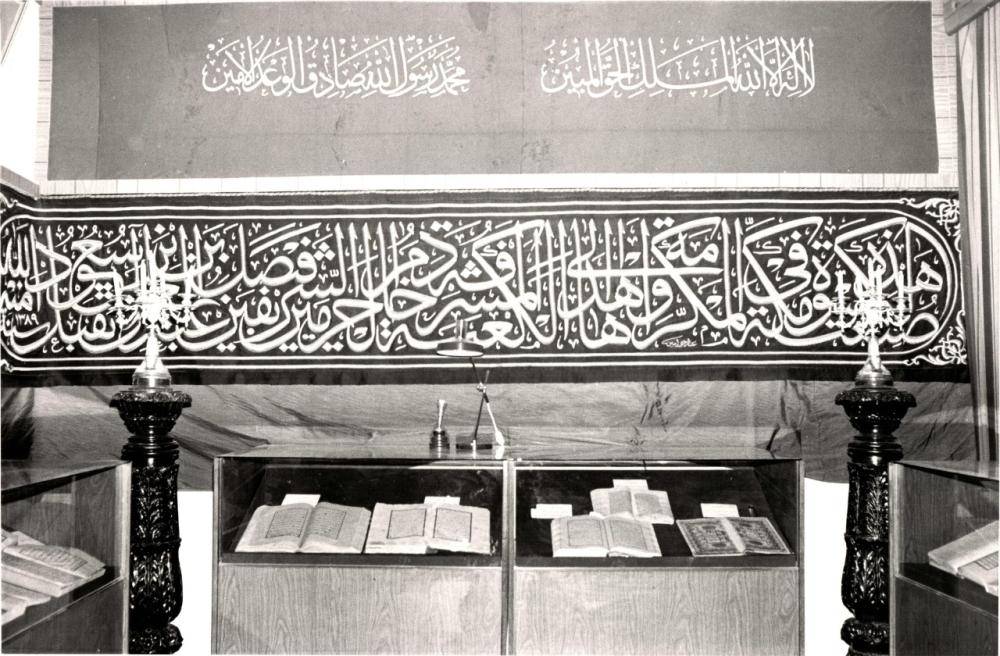 لا إله إلا الله الملك الحق المبين محمد رسول الله صادق الوعد الأمين
صنعت هذه الكسوة في مكة المكرمة وأهداها إلى الكعبة المشرفة خادم الحرمين الشريفين فيصل بن عبد العزيز آل سعود تقبل الله منه ١٣٨٩